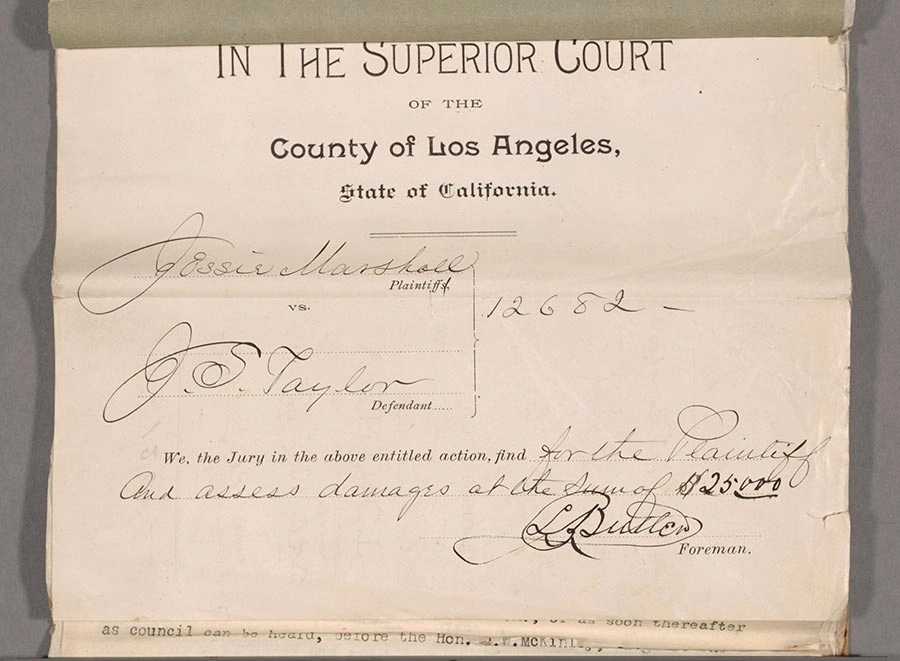 IN THE SUPERIOR COURT
OF THE
County of Los Angeles,
State of California.
Jessie Marshall
Plaintiff,
vs.
12682 -
J. S. Taylor
Defendant......
We, the Jury in the above entitled action, find for the Plaintiff
And assess damages at the sum of $25000
Butler
Foreman.
or as soon thereafter
as council can be heard, before the Hon.